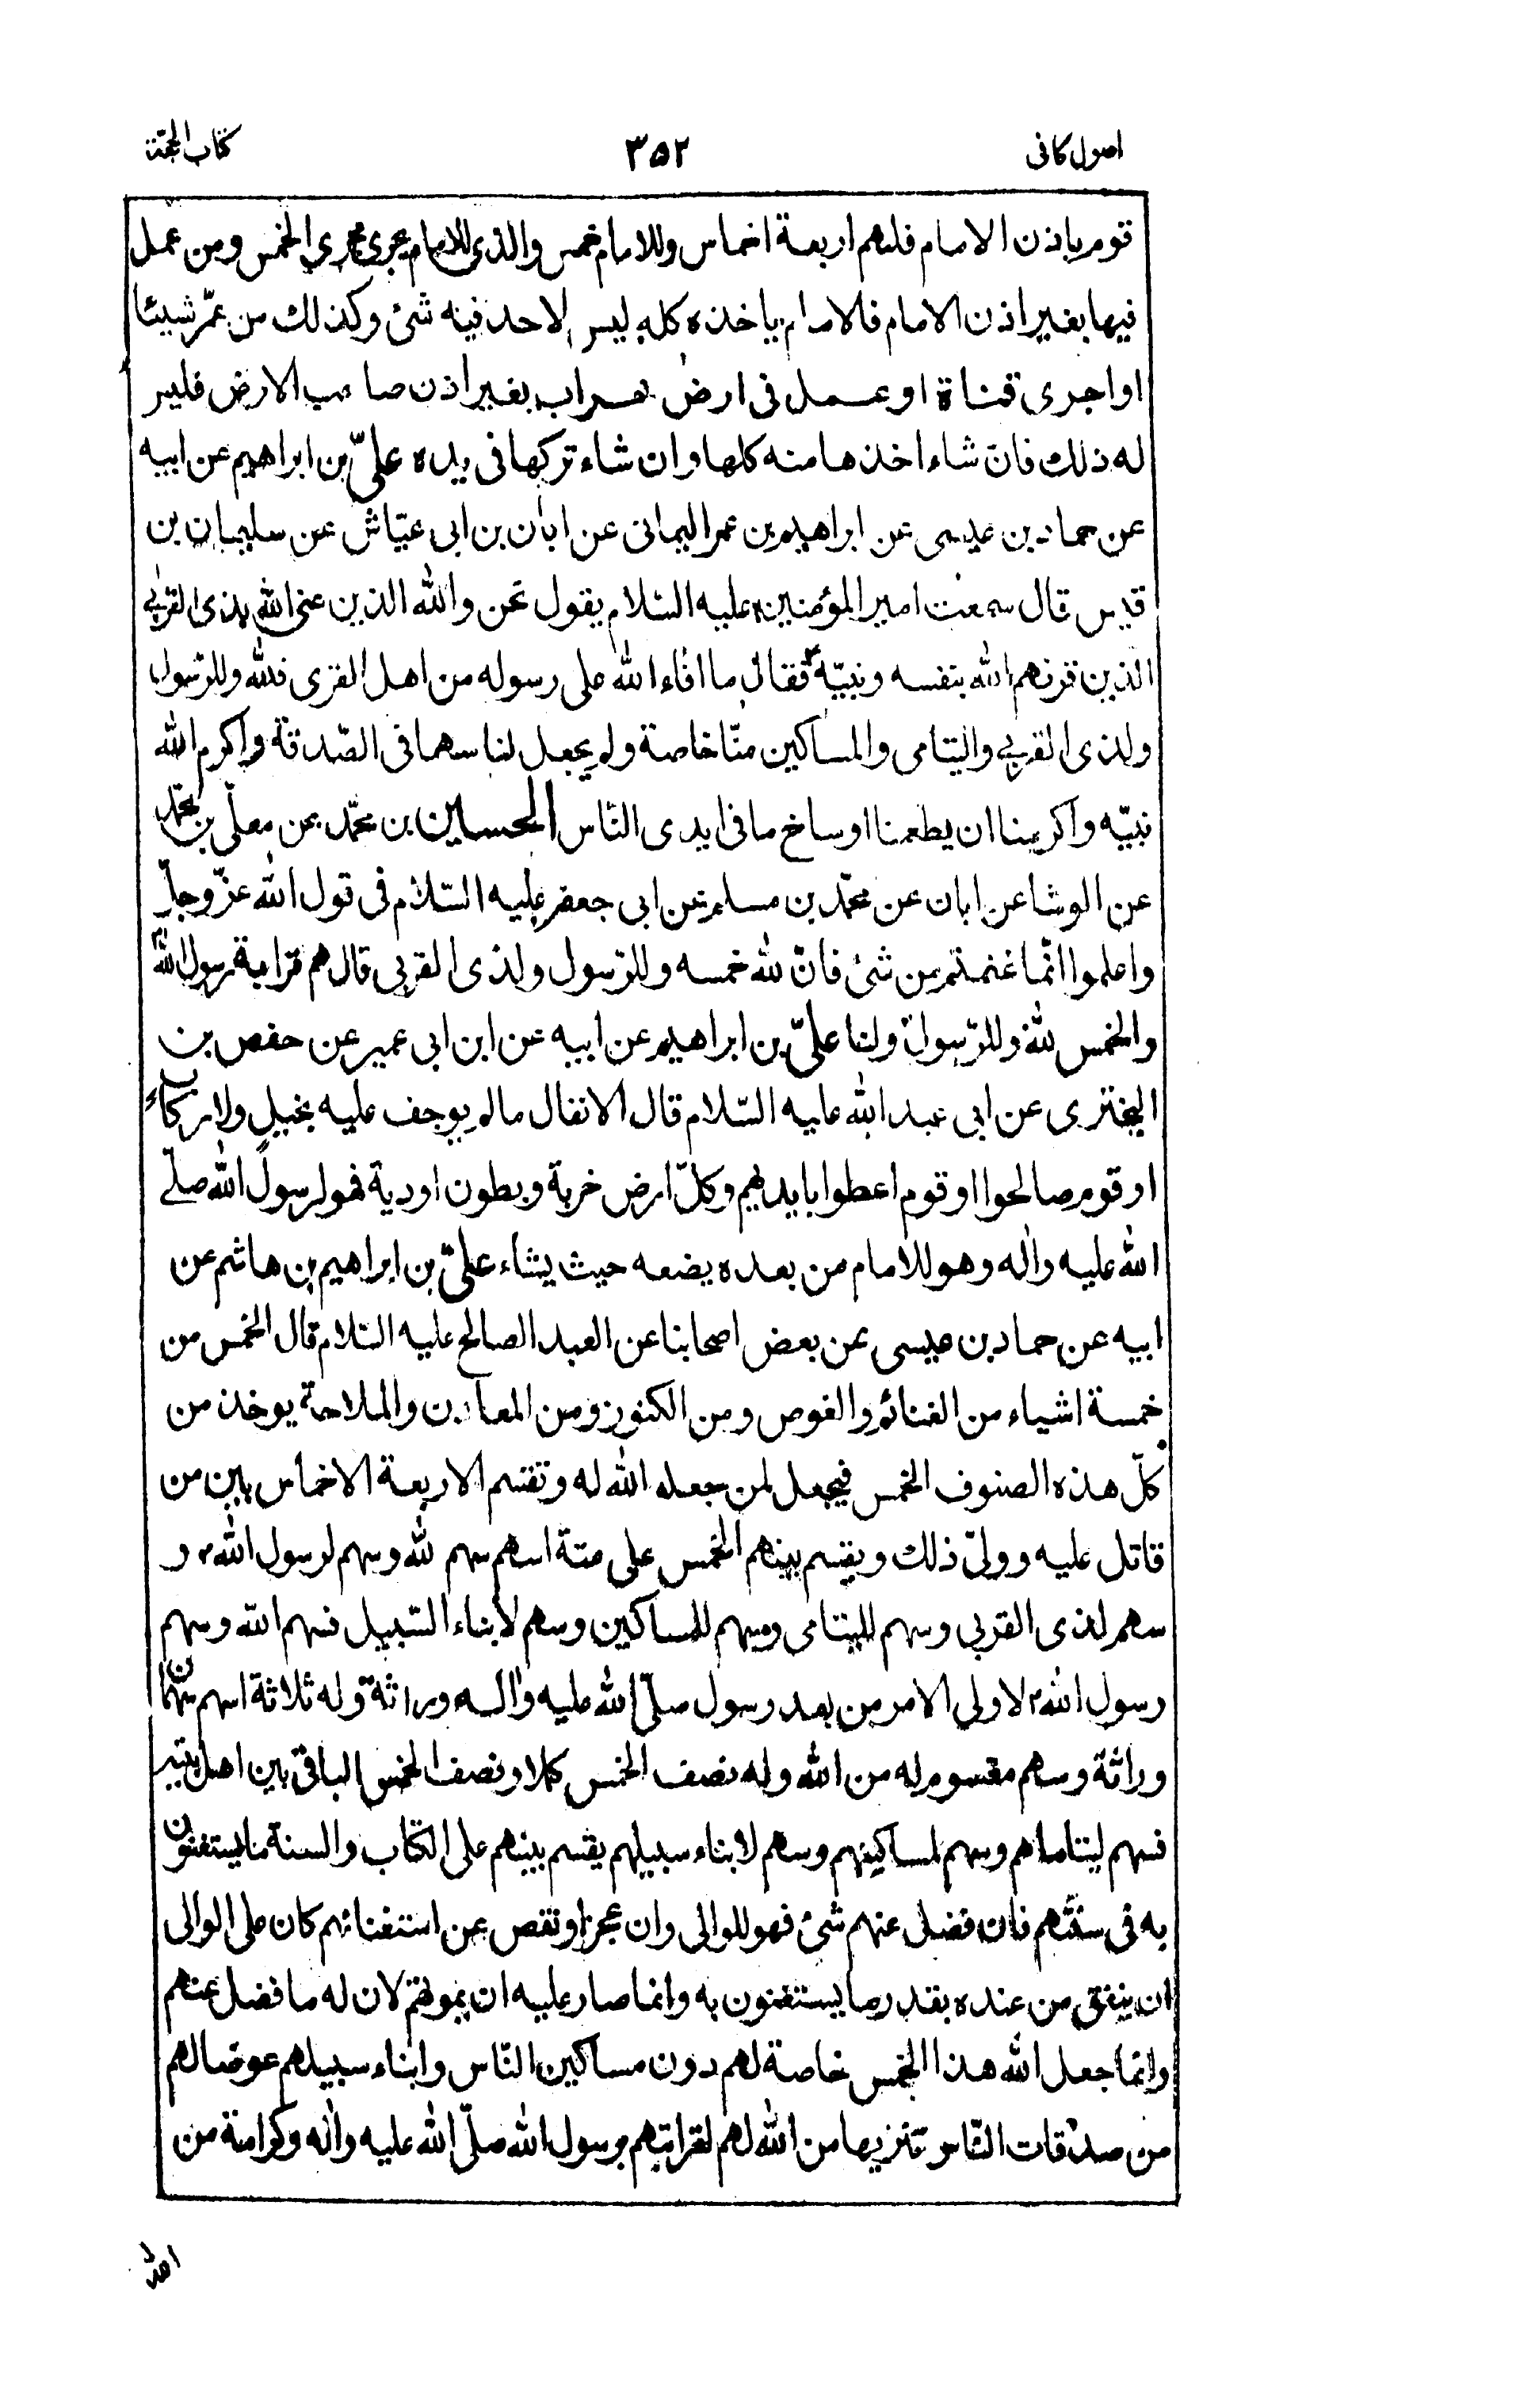 اصول كافى ٣٥٢ كتاب الحجّة
قوم باذن الامام فلهم اربعة اخماس وللامام خمس والذى للامام يجرى مجرى الخمس ومن عمل
فيها بغير اذن الامام فالامام ياخذه كله ليس لاحد فيه شئ وكذلك من عمّر شيئا
او اجرى قناة او عمل فى ارض خراب بغير اذن صاحب الارض فليس
له ذلك فان شاء اخذها منه كلها وان شاء تركها فى يده علىّ بن ابراهيم عن ابيه
عن حماد بن عيسى عن ابراهيم بن عمر اليمانى عن ابان بن ابى عيّاش عن سليمان بن
قيس قال سمعت امير المؤمنين عليه السّلام يقول نحن والله الذين عنى الله بذى القربى
الذين قرنهم الله بنفسه ونبيّه فقال ما افاء الله على رسوله من اهل القرى فلله وللرّسول
ولذى القربى واليتامى والمساكين منّا خاصة ولم يجعل لنا سهما فى الصّدقة واكرم الله
نبيّه واكرمنا ان يطعمنا اوساخ ما فى ايدى النّاس الحسين بن محمّد عن معلّى بن محمّد
عن الوشا عن ابان عن محمّد بن مسلم عن ابى جعفر عليه السّلام فى قول الله عزّ وجلّ
واعلموا انّما غنمتم من شئ فانّ لله خمسه وللرّسول ولذى القربى قال هم قرابة رسول الله
والخمس لله وللرّسول ولنا علىّ بن ابراهيم عن ابيه عن ابن ابى عمير عن حفص بن
البخترى عن ابى عبد الله عليه السّلام قال الانفال مالم يوجف عليه بخيل ولا ركاب
او قوم صالحوا او قوم اعطوا بايديهم وكلّ ارض خربة وبطون اودية فهو لرسول الله صلّى
الله عليه واله وهو للامام من بعده يضعه حيث يشاء علىّ بن ابراهيم بن هاشم عن
ابيه عن حماد بن عيسى عن بعض اصحابنا عن العبد الصالح عليه السّلام قال الخمس من
خمسة اشياء من الغنائم والغوص ومن الكنوز ومن المعادن والملاحة يوخذ من
كلّ هذه الصنوف الخمس فيجعل لمن جعله الله له وتقسم الاربعة الاخماس بين من
قاتل عليه وولىّ ذلك ويقسم بينهم الخمس على ستة اسهم سهم لله وسهم لرسول الله و
سهم لذى القربى وسهم لليتامى وسهم للمساكين وسهم لابناء السّبيل فسهم الله وسهم
رسول الله لاولى الامر من بعد رسول صلّى الله عليه واله وراثة وله ثلاثة اسهم سهمان
وراثة وسهم مقسوم له من الله وله نصف الخمس كملا ونصف الخمس الباقى بين اهل بيته
فسهم ليتاماهم وسهم لمساكينهم وسهم لابناء سبيلهم يقسم بينهم على الكتاب والسنة ما يستغنون
به فى سنتهم فان فضل عنهم شئ فهو للوالى وان عجز او نقص عن استغنائهم كان على الوالى
ان ينفق من عنده بقدر ما يستغنون به وانما صار عليه ان يمونهم لان له ما فضل عنهم
وانما جعل الله هذا الخمس خاصة لهم دون مساكين النّاس وابناء سبيلهم عوضا لهم
من صدقات النّاس تنزيها من الله لهم لقرابتهم برسول الله صلّى الله عليه واله وكرامة من